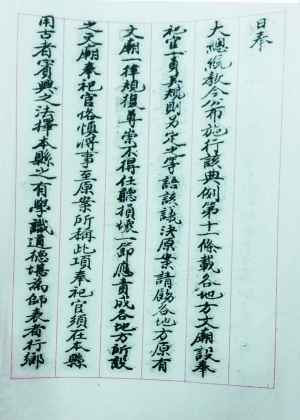 日奉
大總統敎令公布施行該典例第十一條載各地方文廟設奉
祀官一員其規則另定之等語該議決原案請飭各地方原有
文廟一律規復尊崇不得任聽損壞一節應責成各地方所設
之文廟奉祀官恪慎將事至原案所稱此項奉祀官須在本縣
用古者賓興之法擇本縣之有學識道德堪為師表者行鄉